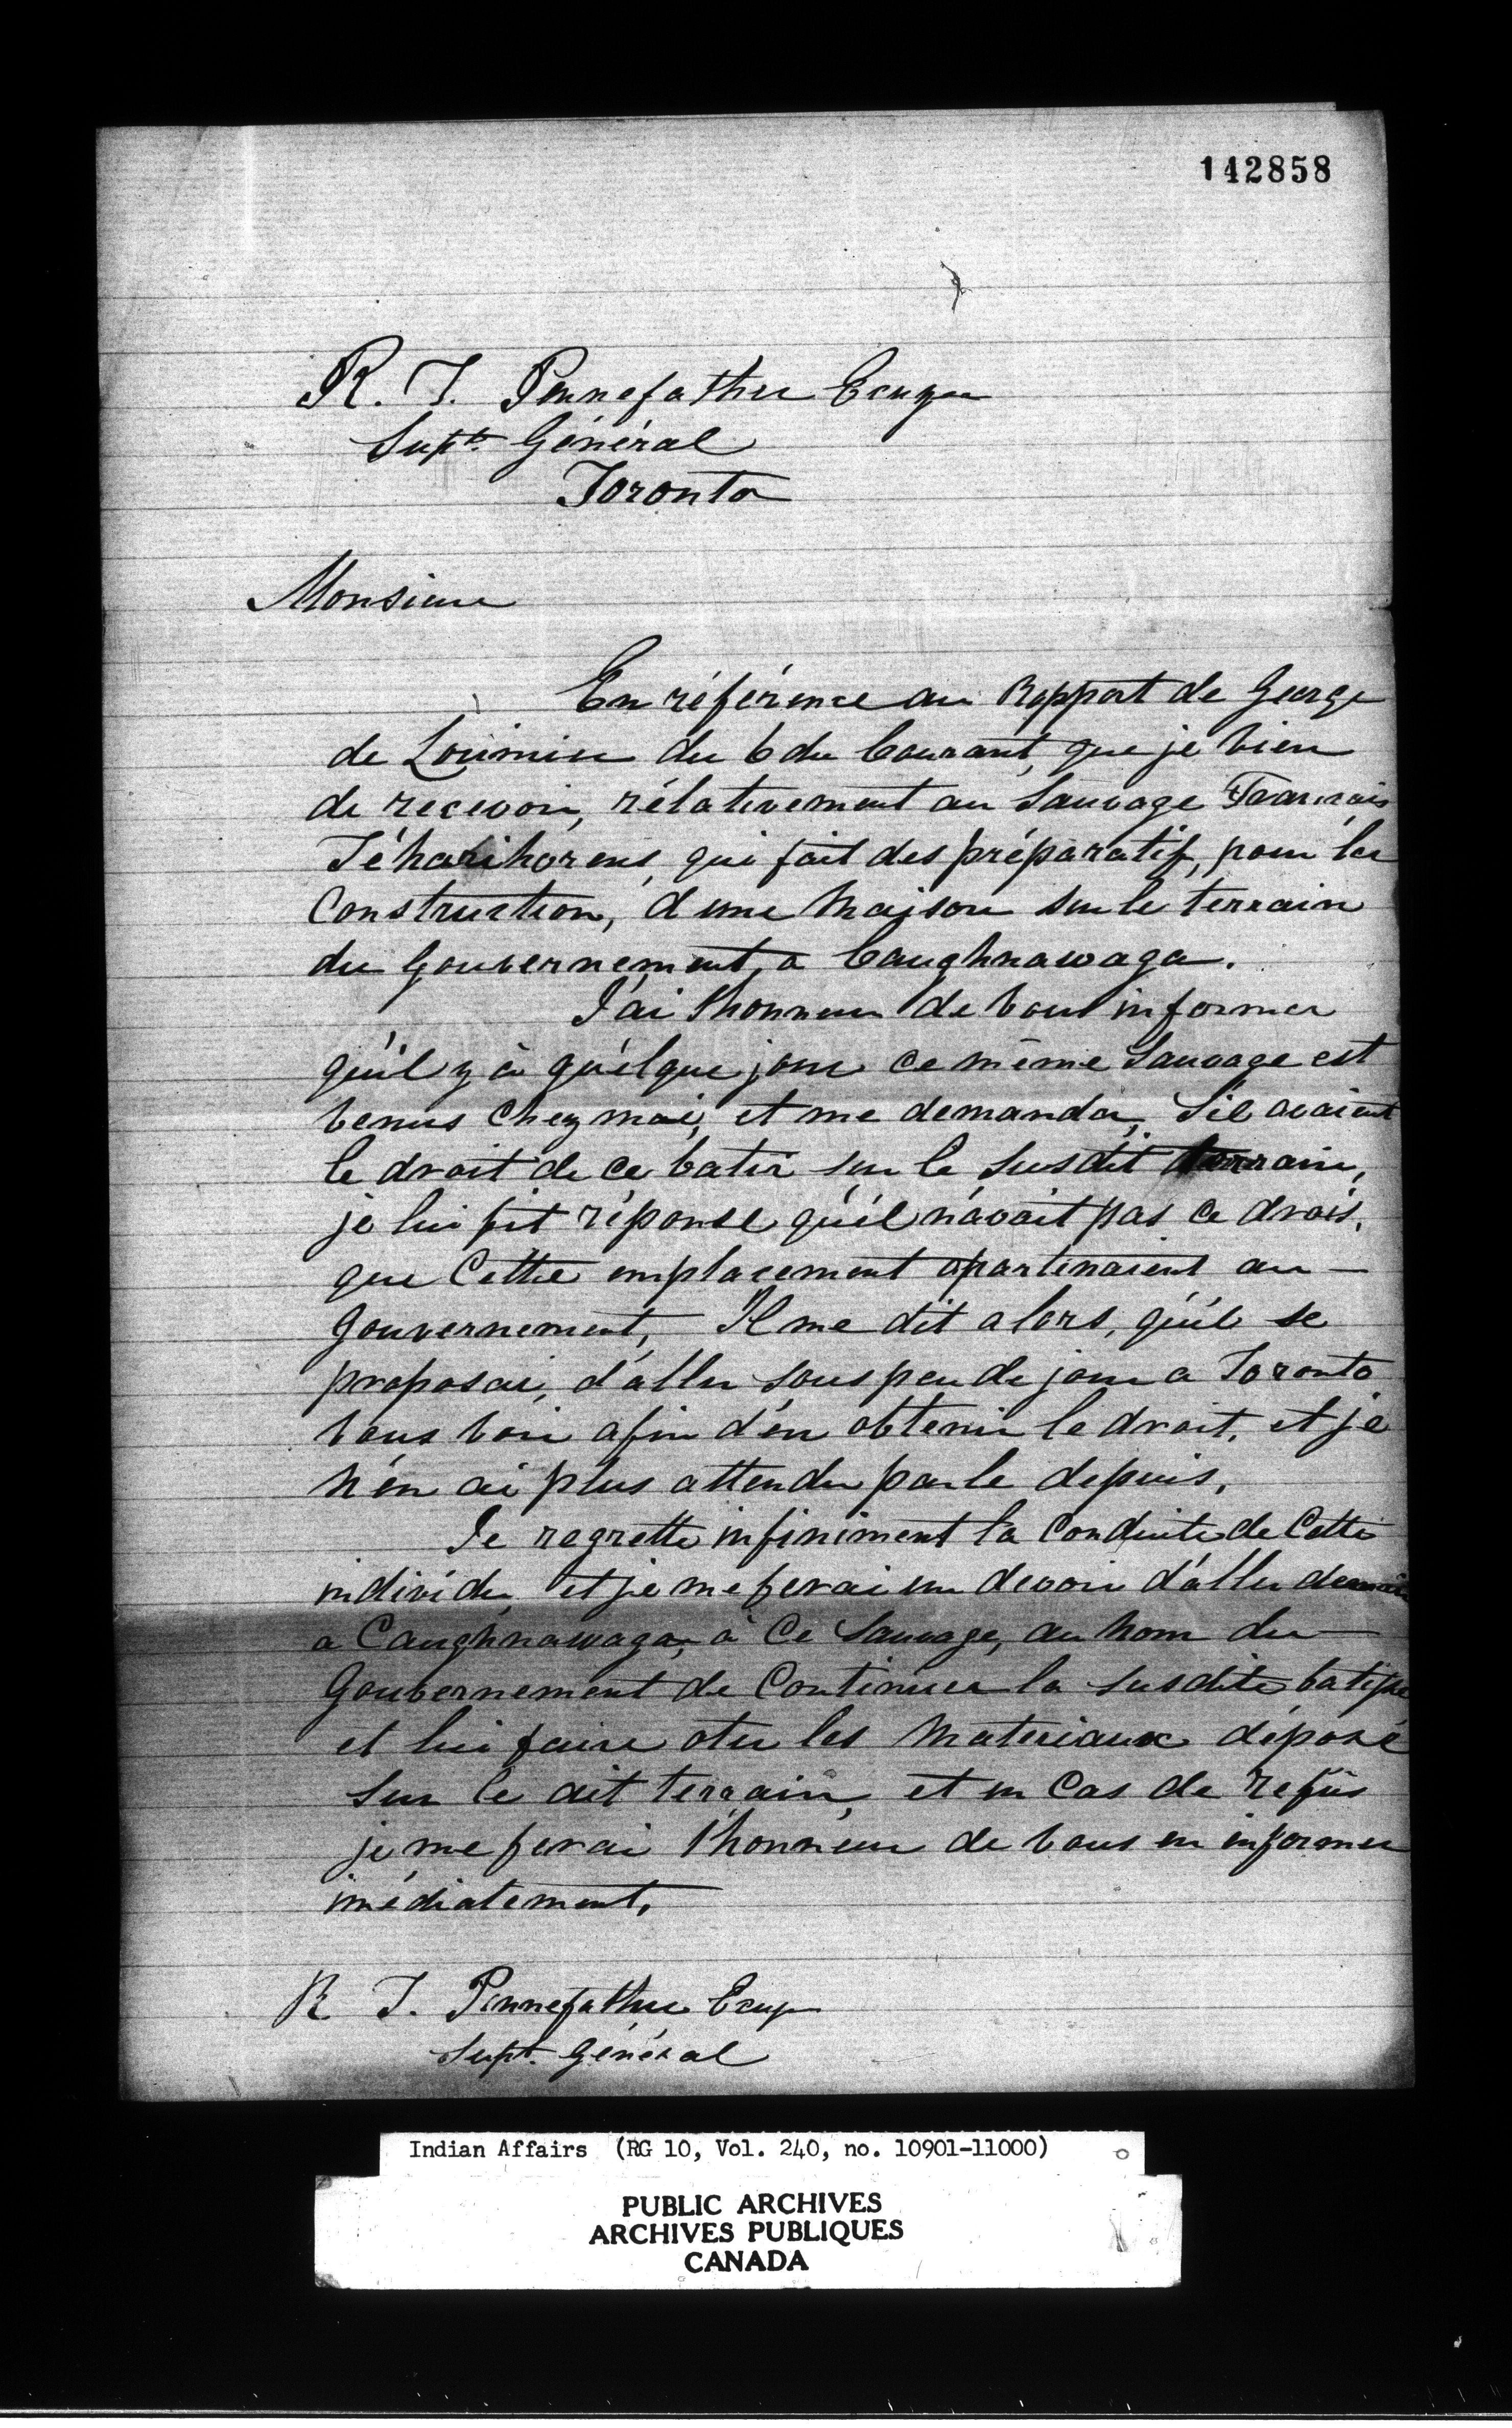 142858
R. T. Pennefather Ecuyer
Supt. Général
Toronto
Monsieur
En référence au Rapport de George
de Lorimier du 6 du Courant, que je vien
de recevoir, rélativement au Sauvage Francais
Téharihorens, qui fait des préparatif, pour la
Construction, d'une Maison sur le terrain
du Gouvernement, a Caughnawaga.
J'ai l'honneur de vous informer
qu'il y à quélque jour ce même Sauvage est
venus Chez moi, et me demanda, S'il avaient
le droit de ce batir sur le Susdit terrain,
je lui fit réponse qu'il n'avait pas ce droit,
que Cette emplacement apartenaient au —
Gouvernement, Il me dit alors, qu'il se
proposai, d'aller sous peu de jour a Toronto
vous voir afin d'en obtenir le droit, et je
n'en ai plus attendu parlé depuis,
Je regrette infiniment la Conduite de Cette
individu, et je me ferai un devoir d'aller demain
a Caughnawaga, à Ce Sauvage, au nom du —
Gouvernement de Continuer la susdite batisse
et lui faire oter les Materiaux déposé
sur le dit terrain, et en Cas de refus
je me ferai l'honneur de vous en informer
imédiatement,
R T. Pennefather Ecuyr
Supt. Général
Indian Affairs (RG 10, Vol. 240, no. 10901-11000)
PUBLIC ARCHIVES
ARCHIVES PUBLIQUES
CANADA